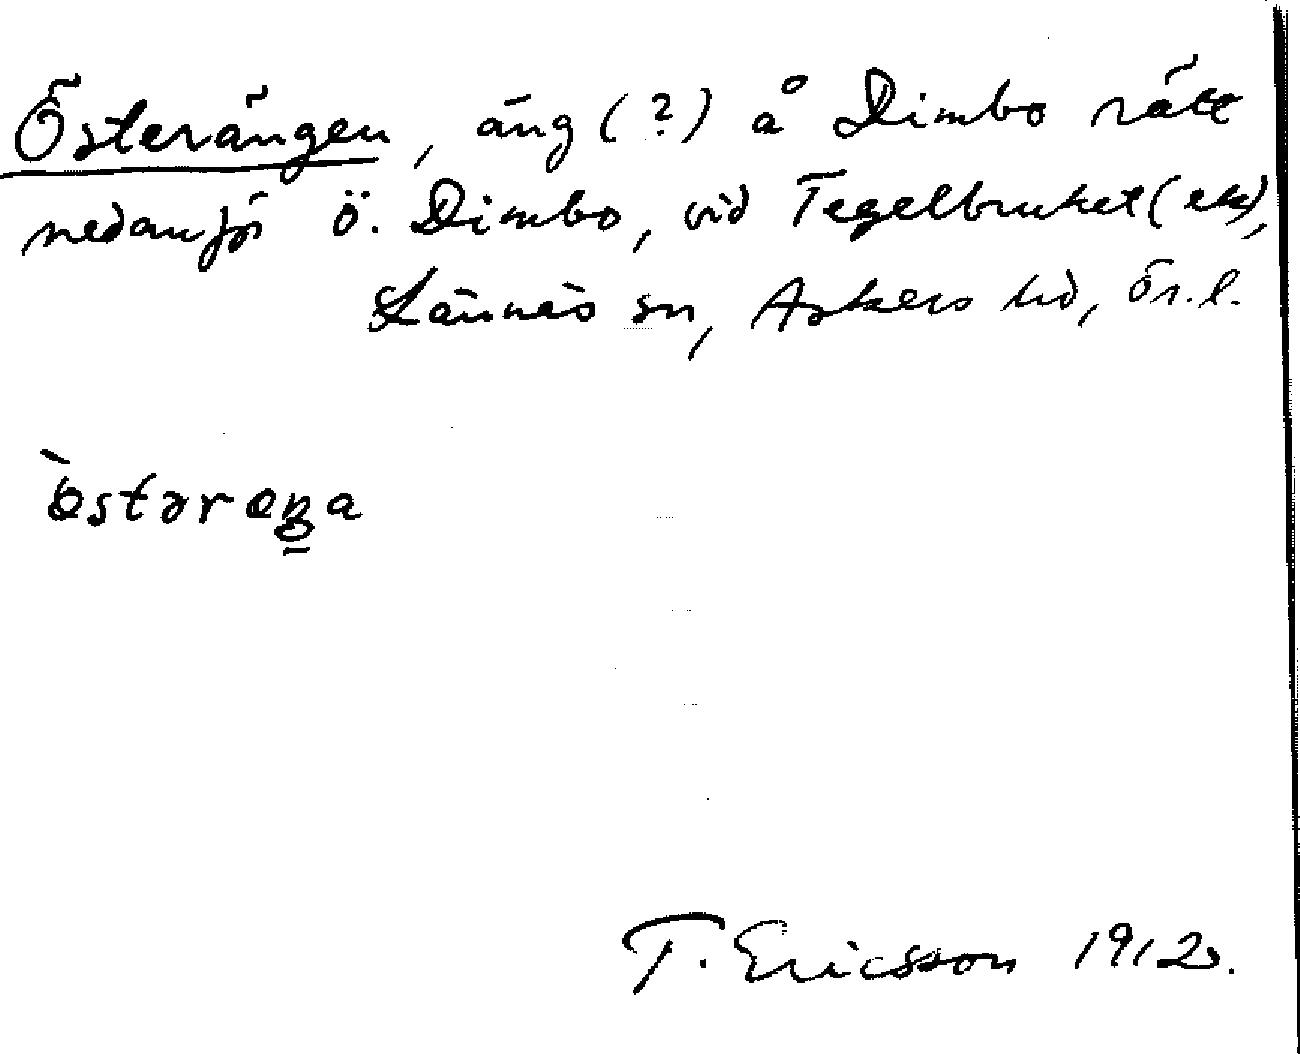 Österängen, äng (?) å Dimbo rätt
nedanför Ö. Dimbo, vid Tegelbruket (ek),
Lännäs sn, Askers hd, Ör. l.
östərеŋa
T. Ericsson 1912.